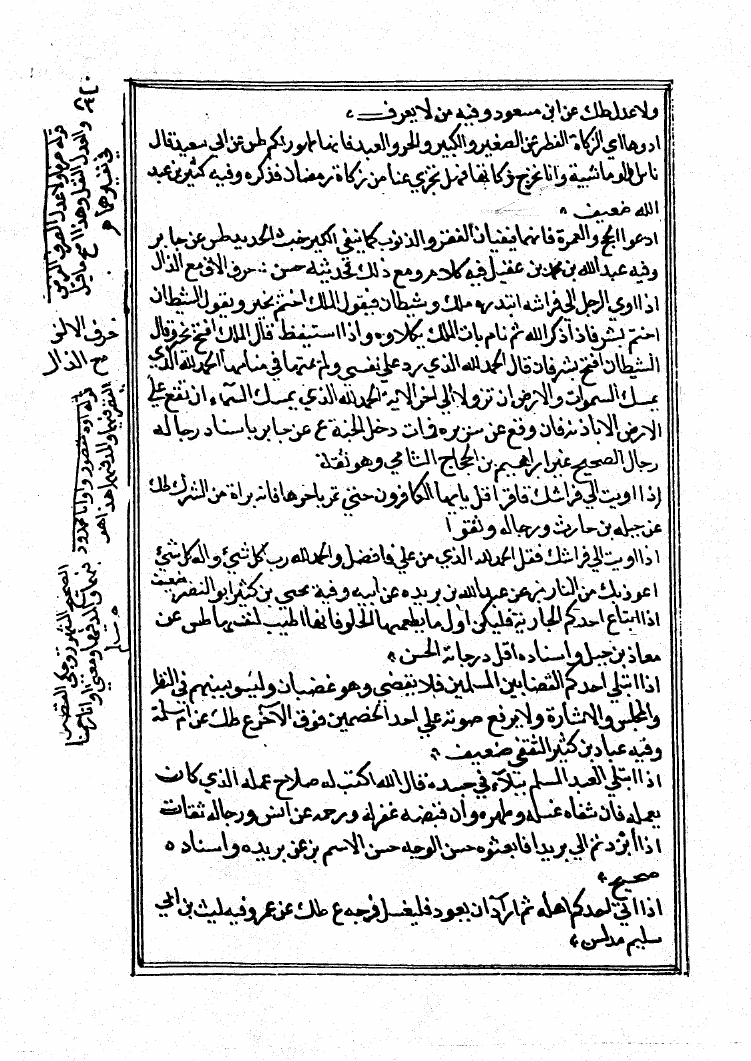 ولا عدل طك عن ابن مسعود وفيه من لا يعرف
ادوها اي الزكاة الفطر عن الصغير والكبير والحر والعبد فانها طهور لكم طس عن ابي سعيد قال
ناس اهلوماشية وانا نخرج زكاتها فهل تجزي عنا من زكاة رمضان فذكره وفيه كثير بن عبد
الله ضعيف
ادعوا الحج والعمرة فانهما ينفيان الفقر والذنوب كما ينفي الكير خبث الحديد طس عن جابر
وفيه عبد الله بن محمد بن عقيل فيه كلام ومع ذلك حديثه حسن حرف الالف مع الذال
اذا اوي الرجل الي فراشه ابتدره ملك وشيطان فيقول الملك اختم بخير ويقول الشيطان
اختم بشر فاذا ذكر الله ثم نام بات الملك بكلاوه واذا استيقظ قال الملك افتح بخير وقال
الشيطان افتح بشر فان قال الحمد لله الذي رد علي نفسي ولم يمتها في منامها الحمد لله الذي
يمسك السموات والارض ان تزولا الي اخر الاية الحمد لله الذي يمسك السماء ان تقع علي
الارض الا باذنه فان وقع عن سريره فمات دخل الجنة ع عن جابر باسناد رجاله
رجال الصحيح غير ابراهيم بن الحجاج الشامي وهو ثقة
اذا اويت الي فراشك فاقرا قل يايها الكافرون حتي تمر باخرها فانه براة من الشرك طك
عن جبله بن حارث ورجاله وثقوا
اذا اويت الي فراشك فقل الحمد لله الذي من علي فافضل والحمد لله رب كل شيئ واله كل شيئ
اعوذ بك من النار بز عن عبد الله بن بريده عن ابيه وفيه يحيي بن كثير ابو النضر ضعيف
اذا ابتاع احدكم الجارية فليكن اول ما يطعمها الحلو فانها اطيب لنفسها طس عن
معاذ بن جبل واسناده اقل درجاته الحسن
اذا ابتلي احدكم القضا بين المسلمين فلا يقضي وهو غضبان وليسو بينهم في النظر
والمجلس والاشارة ولا يرفع صوته علي احد الخصمين فوق الاخر ع طك عن ام سلمة
وفيه عباد بن كثير الثقفي ضعيف
اذا ابتلي العبد المسلم ببلاء في جسده قال الله اكتب له صلاح عمله الذي كان
يعمله فان شفاه غسله وطهره وان قبضه غفر له ورحمه عن انس ورجاله ثقات
اذا ابردتم الي بريدا فابعثوه حسن الوجه حسن الاسم بز عن بريده واسناده
صحيح
اذا اتي احدكم اهله ثم اراد ان يعود فليغسل فرجه ع طك عن عمر وفيه ليث بن ابي
سليم مدلس
قوله صرفا ولا عدلا الصرف الفرض
والعدل النفل وهذا اصح ما قيل
في تفسيرهما
حرف الالف
مع الذال